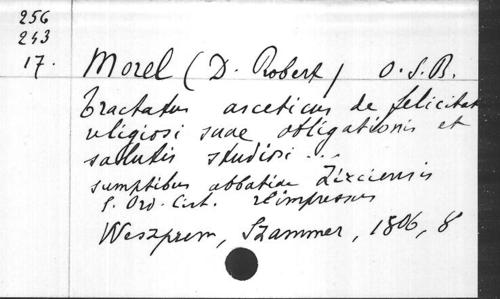 256
243
17.
Morel (D. Robert) O.S.B.
Tractatus asceticus de felicitat
religiosi suae obligationis et
salutis studiosi ...
sumptibus abbatiae Zirciensis
S. Ord. Cist. reimpressus
Weszprem, Szammer, 1806, 8